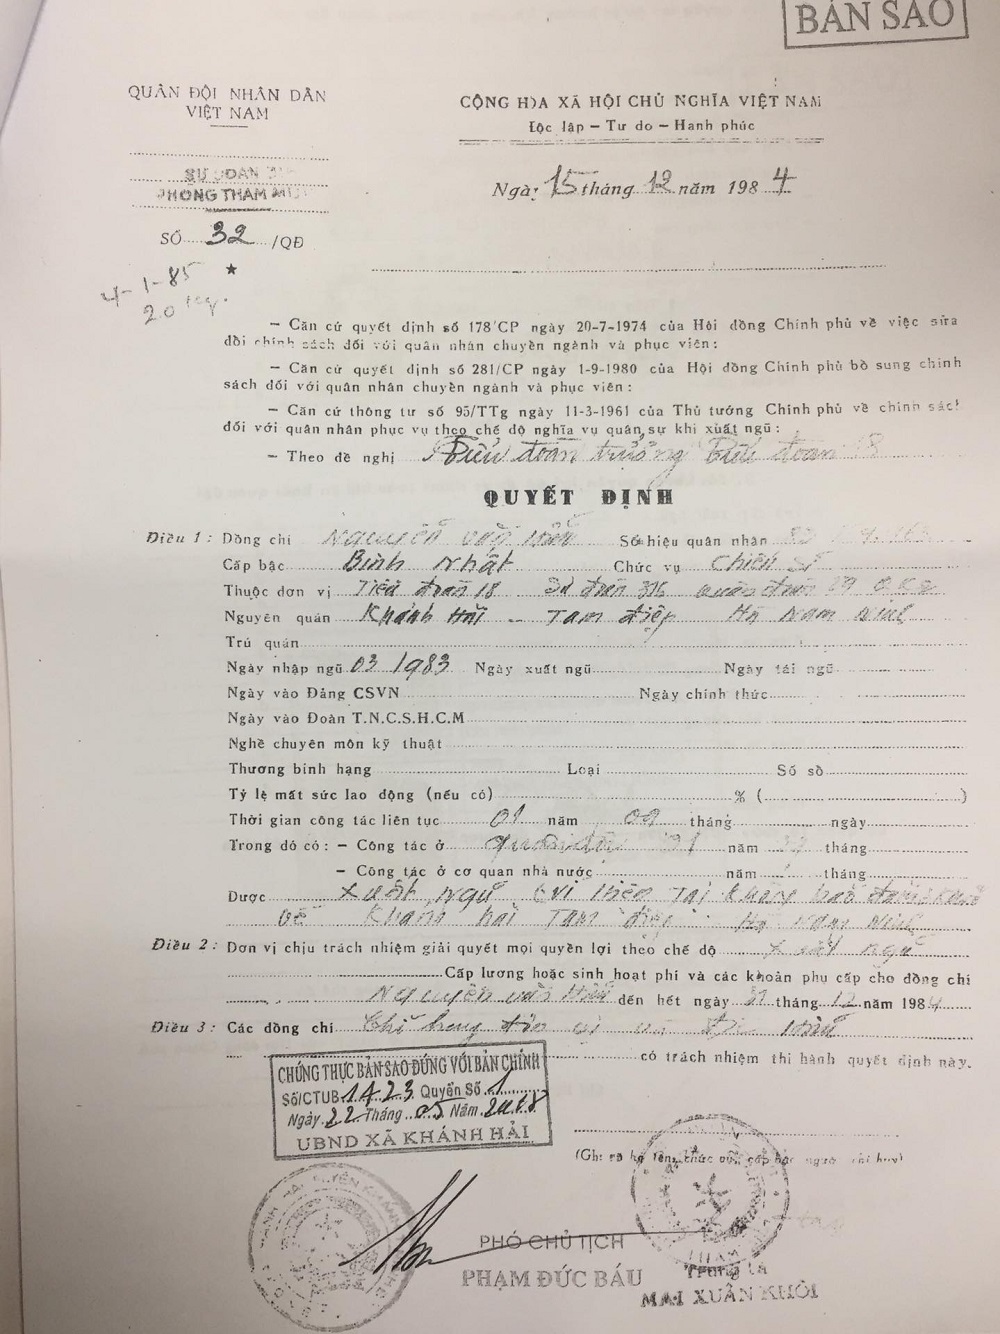 BẢN SAO
QUÂN ĐỘI NHÂN DÂN
VIỆT NAM
CỘNG HÒA XÃ HỘI CHỦ NGHĨA VIỆT NAM
Độc lập – Tự do – Hạnh phúc
SƯ ĐOÀN
PHÒNG THAM MƯU
Ngày 15 tháng 12 năm 1984
SỐ 32 /QĐ
4-1-85
– Căn cứ quyết định số 178/CP ngày 20-7-1974 của Hội đồng Chính phủ về việc sửa
đổi chính sách đối với quân nhân chuyên ngành và phục viên:
– Căn cứ quyết định số 281/CP ngày 1-9-1980 của Hội đồng Chính phủ bổ sung chính
sách đối với quân nhân chuyên ngành và phục viên:
– Căn cứ thông tư số 95/TTg ngày 11-3-1961 của Thủ tướng Chính phủ về chính sách
đối với quân nhân phục vụ theo chế độ nghĩa vụ quân sự khi xuất ngũ:
– Theo đề nghị Tiểu đoàn trưởng Tiểu đoàn 18
QUYẾT ĐỊNH
Điều 1: Đồng chí Nguyễn văn Số hiệu quân nhân
Cấp bậc Binh Nhất Chức vụ Chiến sĩ
Thuộc đơn vị Tiểu đoàn 18 Sư đoàn 316 quân đoàn 29 QK2
Nguyên quán Khánh Hải – Tam điệp Hà Nam Ninh
Trú quán
Ngày nhập ngũ 03/1983 Ngày xuất ngũ Ngày tái ngũ
Ngày vào Đảng CSVN Ngày chính thức
Ngày vào Đoàn T.N.C.S.H.C.M
Nghề chuyên môn kỹ thuật
Thương binh hạng Loại Số sổ
Tỷ lệ mất sức lao động (nếu có) % ( )
Thời gian công tác liên tục 01 năm 09 tháng ngày
Trong đó có: – Công tác ở quân đội 01 năm tháng
– Công tác ở cơ quan nhà nước năm tháng
Được Xuất Ngũ
về Khánh hải Tam điệp Hà Nam Ninh
Điều 2: Đơn vị chịu trách nhiệm giải quyết mọi quyền lợi theo chế độ xuất ngũ
Cấp lương hoặc sinh hoạt phí và các khoản phụ cấp cho đồng chí
Nguyễn văn đến hết ngày 31 tháng 12 năm 1984
Điều 3: Các đồng chí
có trách nhiệm thi hành quyết định này.
CHỨNG THỰC BẢN SAO ĐÚNG VỚI BẢN CHÍNH
Số/CTUB 1423 Quyển Số 1
Ngày 22 Tháng 05 Năm 2018
UBND XÃ KHÁNH HẢI
(Ghi rõ họ tên, chức vụ, cấp bậc người chỉ huy)
PHÓ CHỦ TỊCH
PHẠM ĐỨC BÁU
Trung tá
MAI XUÂN KHÔI